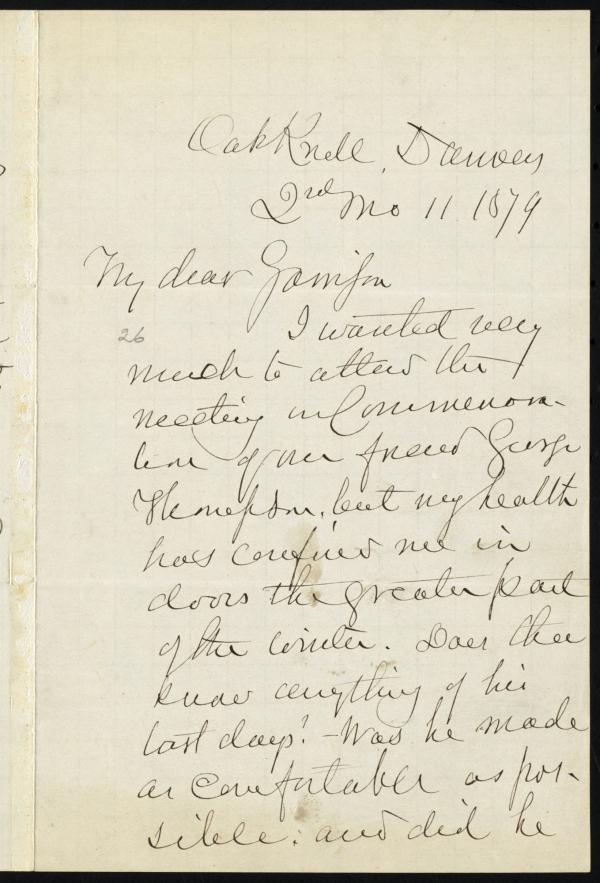 Oak Knoll, Danvers
2nd Mo 11 1879
My dear Garrison
26
I wanted very
much to attend the
meeting in Commemora-
tion of our friend George
Thompson, but my health
has confined me in
doors the greater part
of the winter. Does thee
know anything of his
last days? - Was he made
as comfortable as pos-
sible: and did he